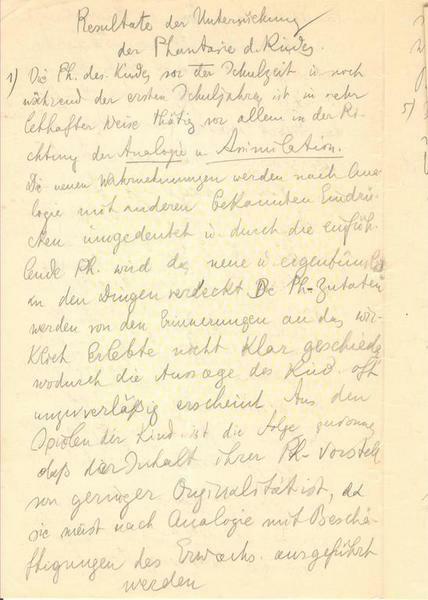 Resultate der Untersuchung
der Phantasie d. Kindes.
1) Die Ph. des Kindes vor der Schulzeit u. noch
während der ersten Schuljahren ist in sehr
lebhafter Weise thätig vor allem in der Ri-
chtung der Analogie u. Assimilation.
Die neuen Wahrnehmungen werden nach Ana-
logie mit anderen bekannten Eindrü-
cken umgedeutet u. durch die einfüh-
lende Ph. wird das neue u. eigentüml.
in den Dingen verdeckt Die Ph-Zutaten
werden von den Erinnerungen an das wir-
klich Erlebte nicht klar geschieden
wodurch die Aussage des Kind. oft
unzuverläßig erscheint. Aus den
Spielen der Kind. ist die Folge
daß der Inhalt ihrer Ph-Vorstell
von geringer Orginalität ist, da
sie meist nach Analogie mit Beschä-
ftigungen des Erwachs. ausgeführt
werden
5)